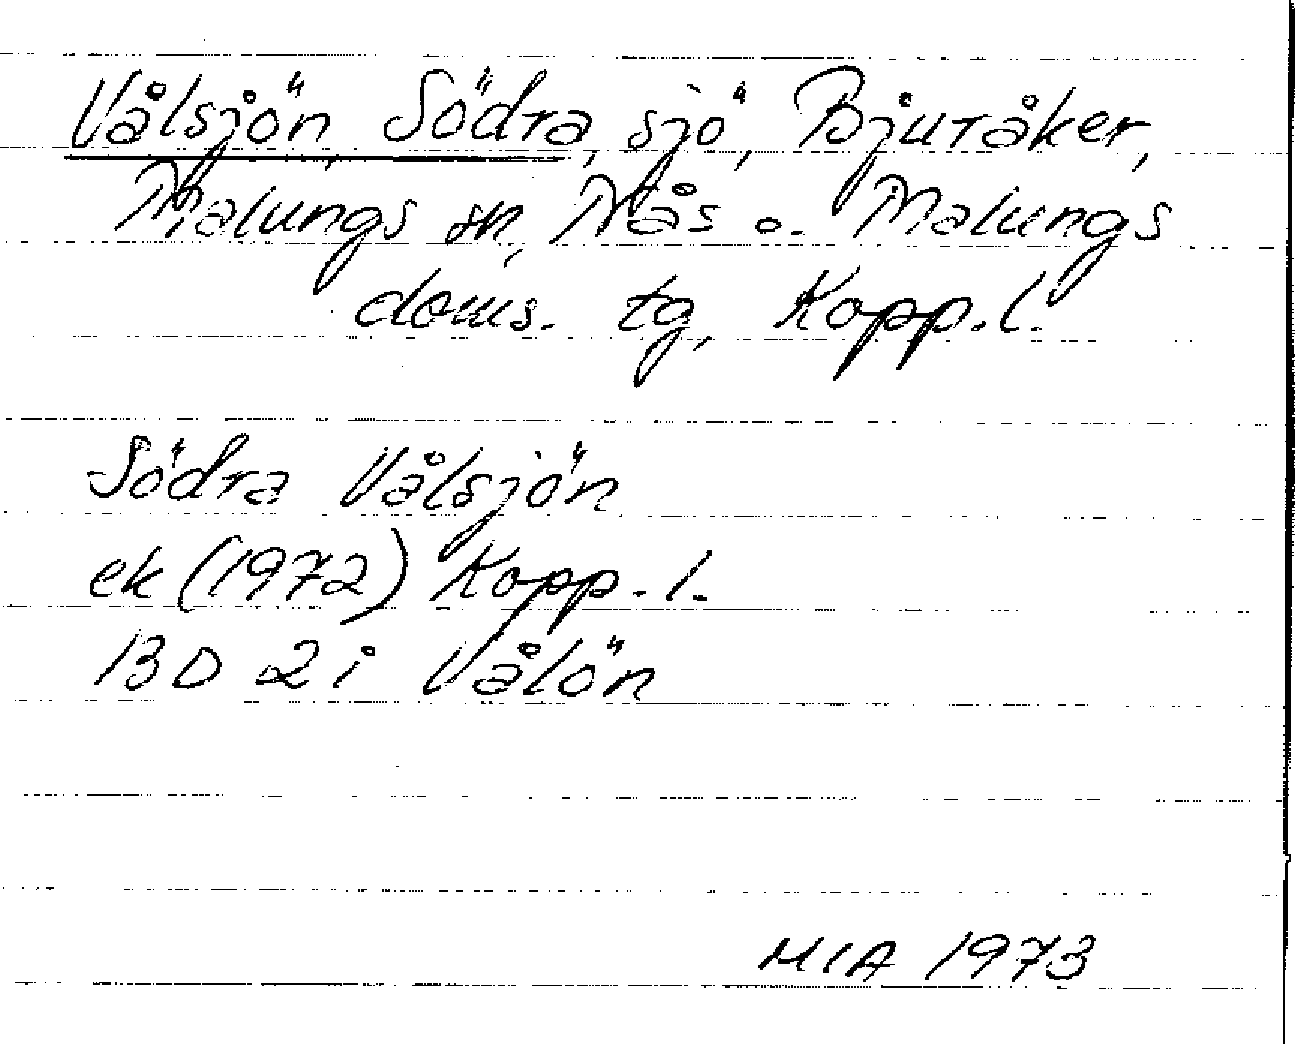 Vålsjön, Södra, sjö, Bjuråker,
Malungs sn, Nås o. Malungs
doms. tg, Kopp.l.
Södra Vålsjön
ek (1972) Kopp.l.
13D 2i Vålön
MIA 1973